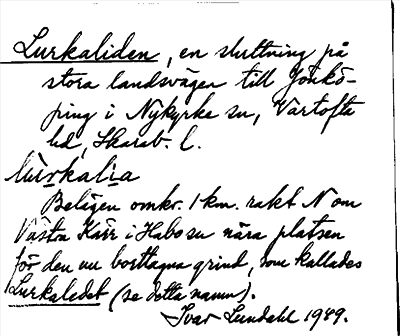 Lurkaliden, en sluttning på
stora landsvägen till Jönkö-
ping i Nykyrke sn, Vartofta
hd, Skarab. l.
lu̇rkali̱a
Belägen omkr. 1 km. rakt N om
Västra Kärr i Habo sn nära platsen
för den nu borttagna grind, som kallades
Lurkaledet (se detta namn).
Ivar Lundahl 1949.